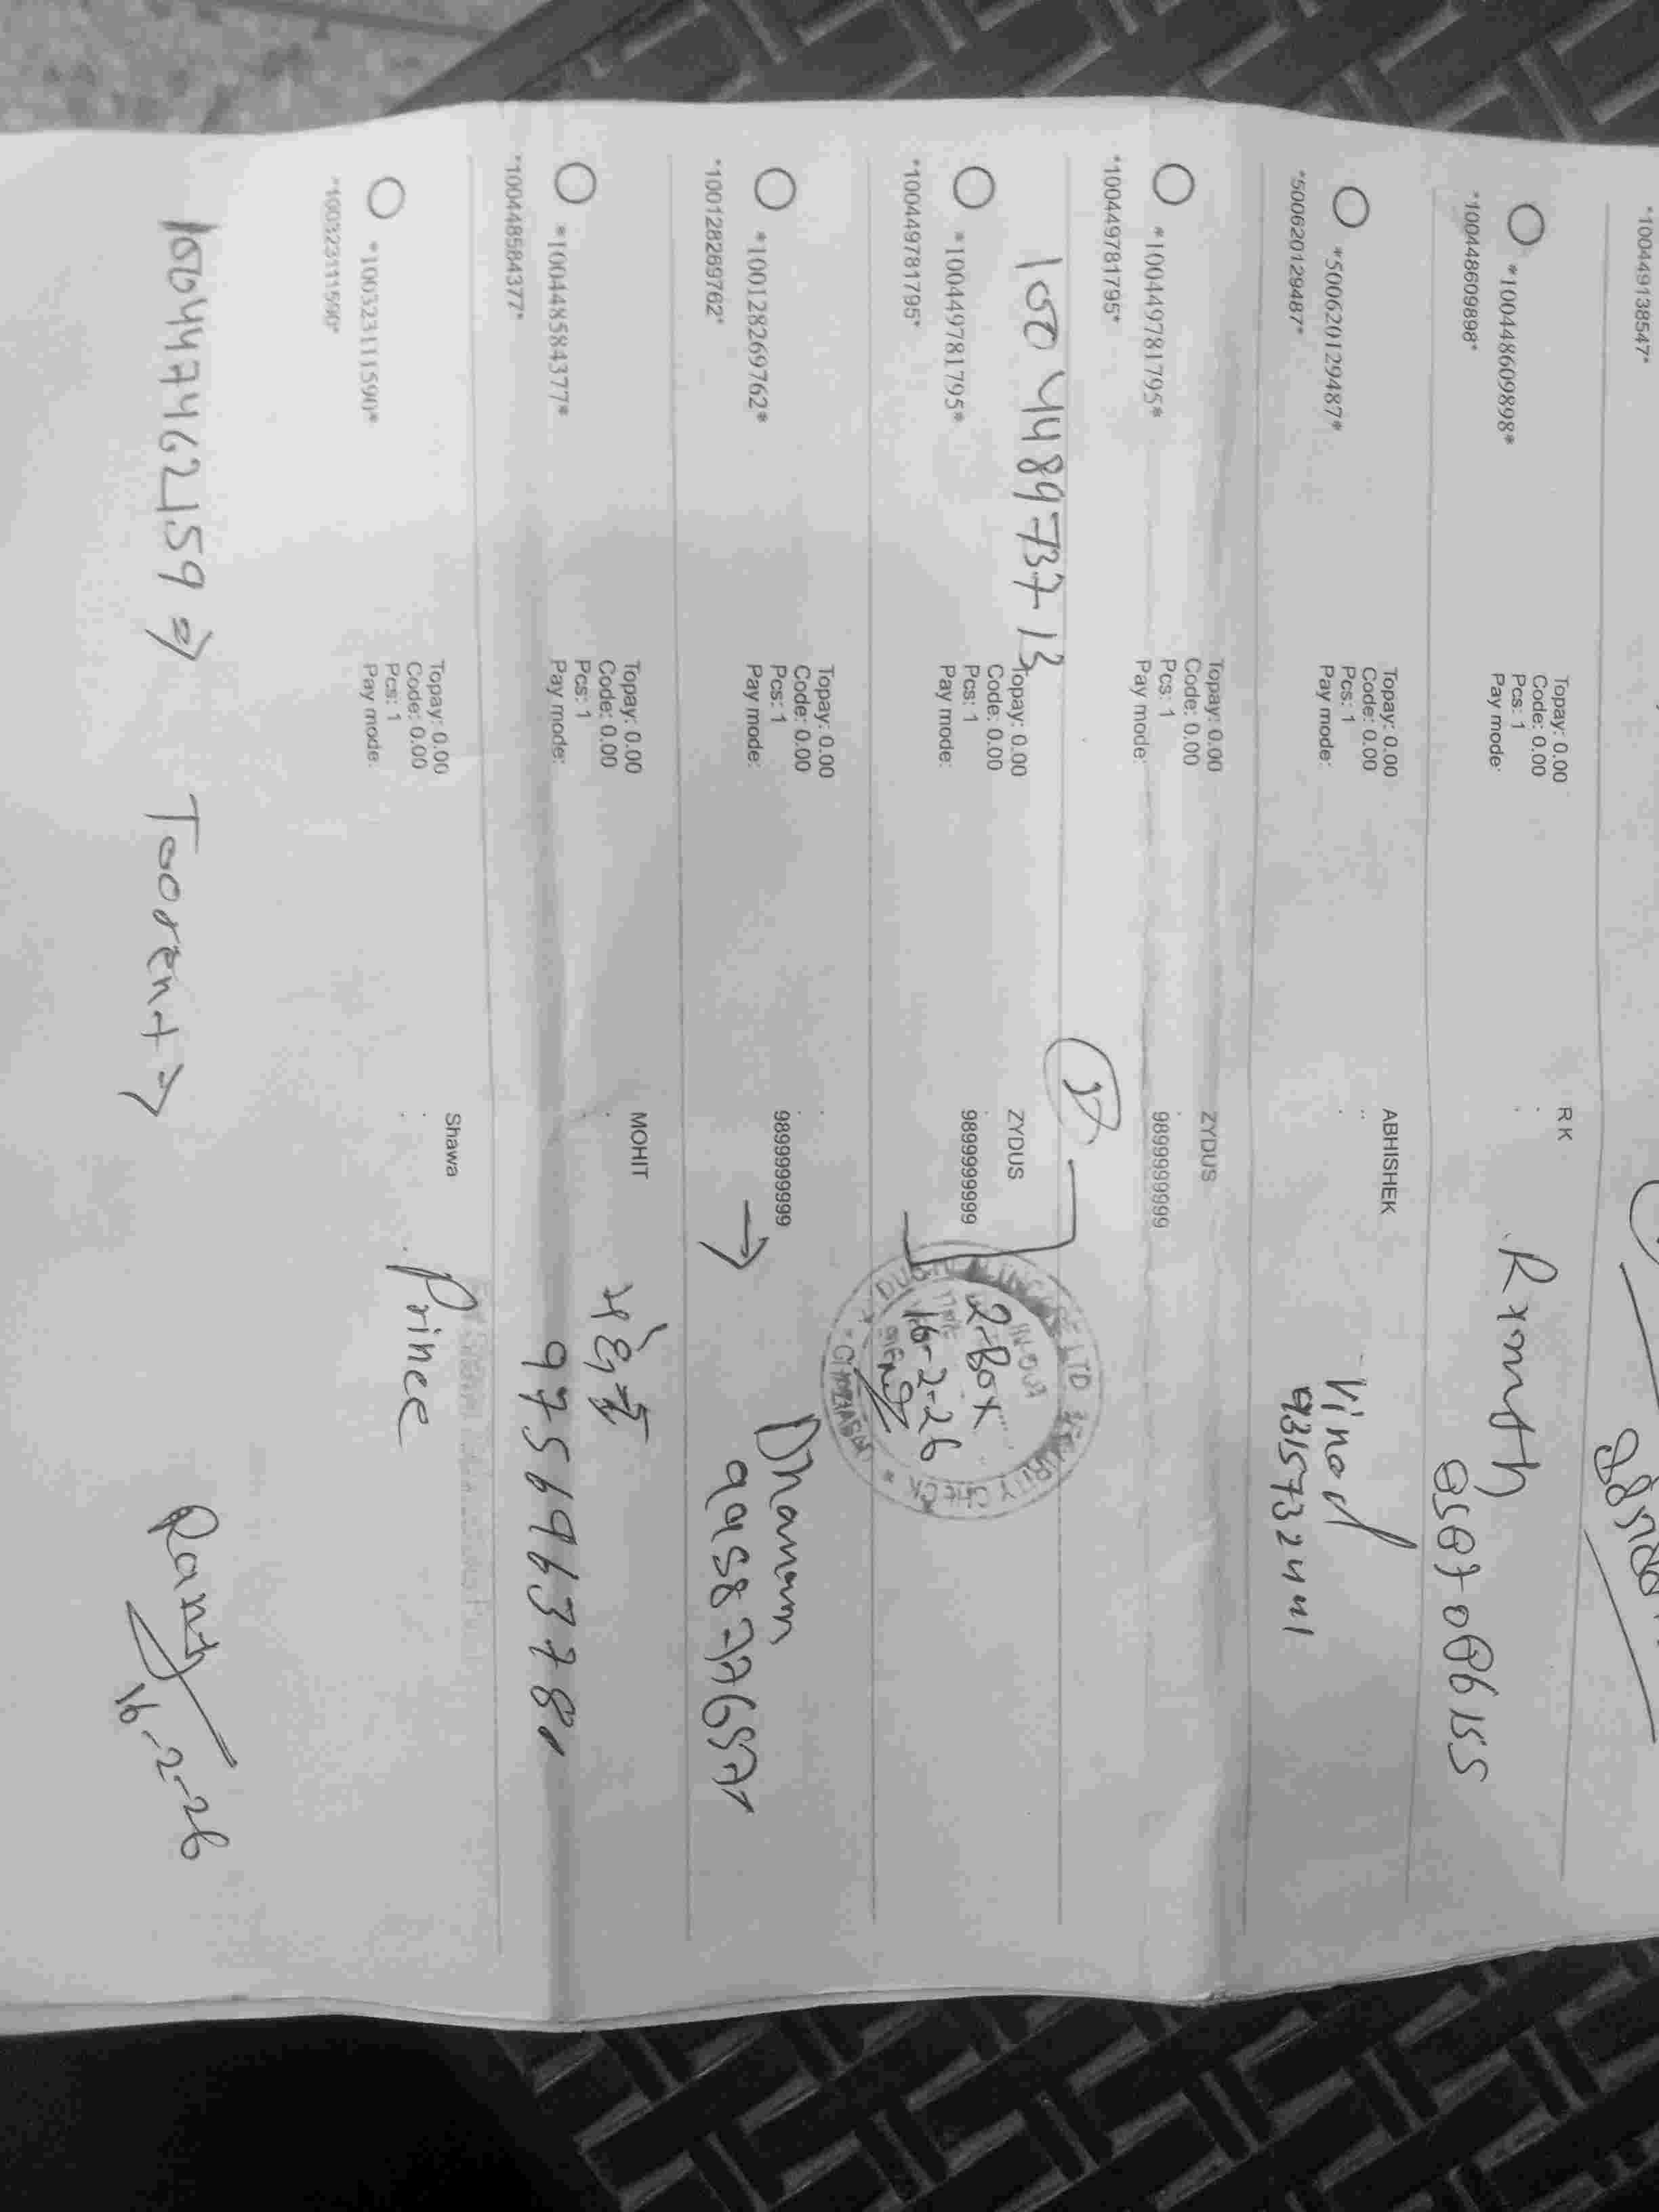 *100449138547*
*100448609898*
*100448609898*
Topay: 0.00
Code: 0.00
Pcs: 1
Pay mode:
R K
*500620129487*
*500620129487*
Topay: 0.00
Code: 0.00
Pcs: 1
Pay mode:
ABHISHEK
Vinod
9315732441
*100449781795*
*100449781795*
Topay: 0.00
Code: 0.00
Pcs: 1
Pay mode:
ZYDUS
9899999999
100448973713
*100449781795*
*100449781795*
Topay: 0.00
Code: 0.00
Pcs: 1
Pay mode:
ZYDUS
9899999999
2-Box
16-2-26
*100128269762*
*100128269762*
Topay: 0.00
Code: 0.00
Pcs: 1
Pay mode:
9899999999
→
*100448584377*
*100448584377*
Topay: 0.00
Code: 0.00
Pcs: 1
Pay mode:
MOHIT
9756963780
*100323111590*
*100323111590*
Topay: 0.00
Code: 0.00
Pcs: 1
Pay mode:
Shawa
Prince
100447462159 ⇒ Toorent →
16-2-26